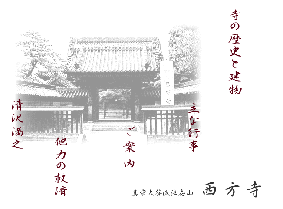 寺の歴史と建物
主な行事
ご案内
他力の救済
清沢満之
真宗大谷派
西方寺